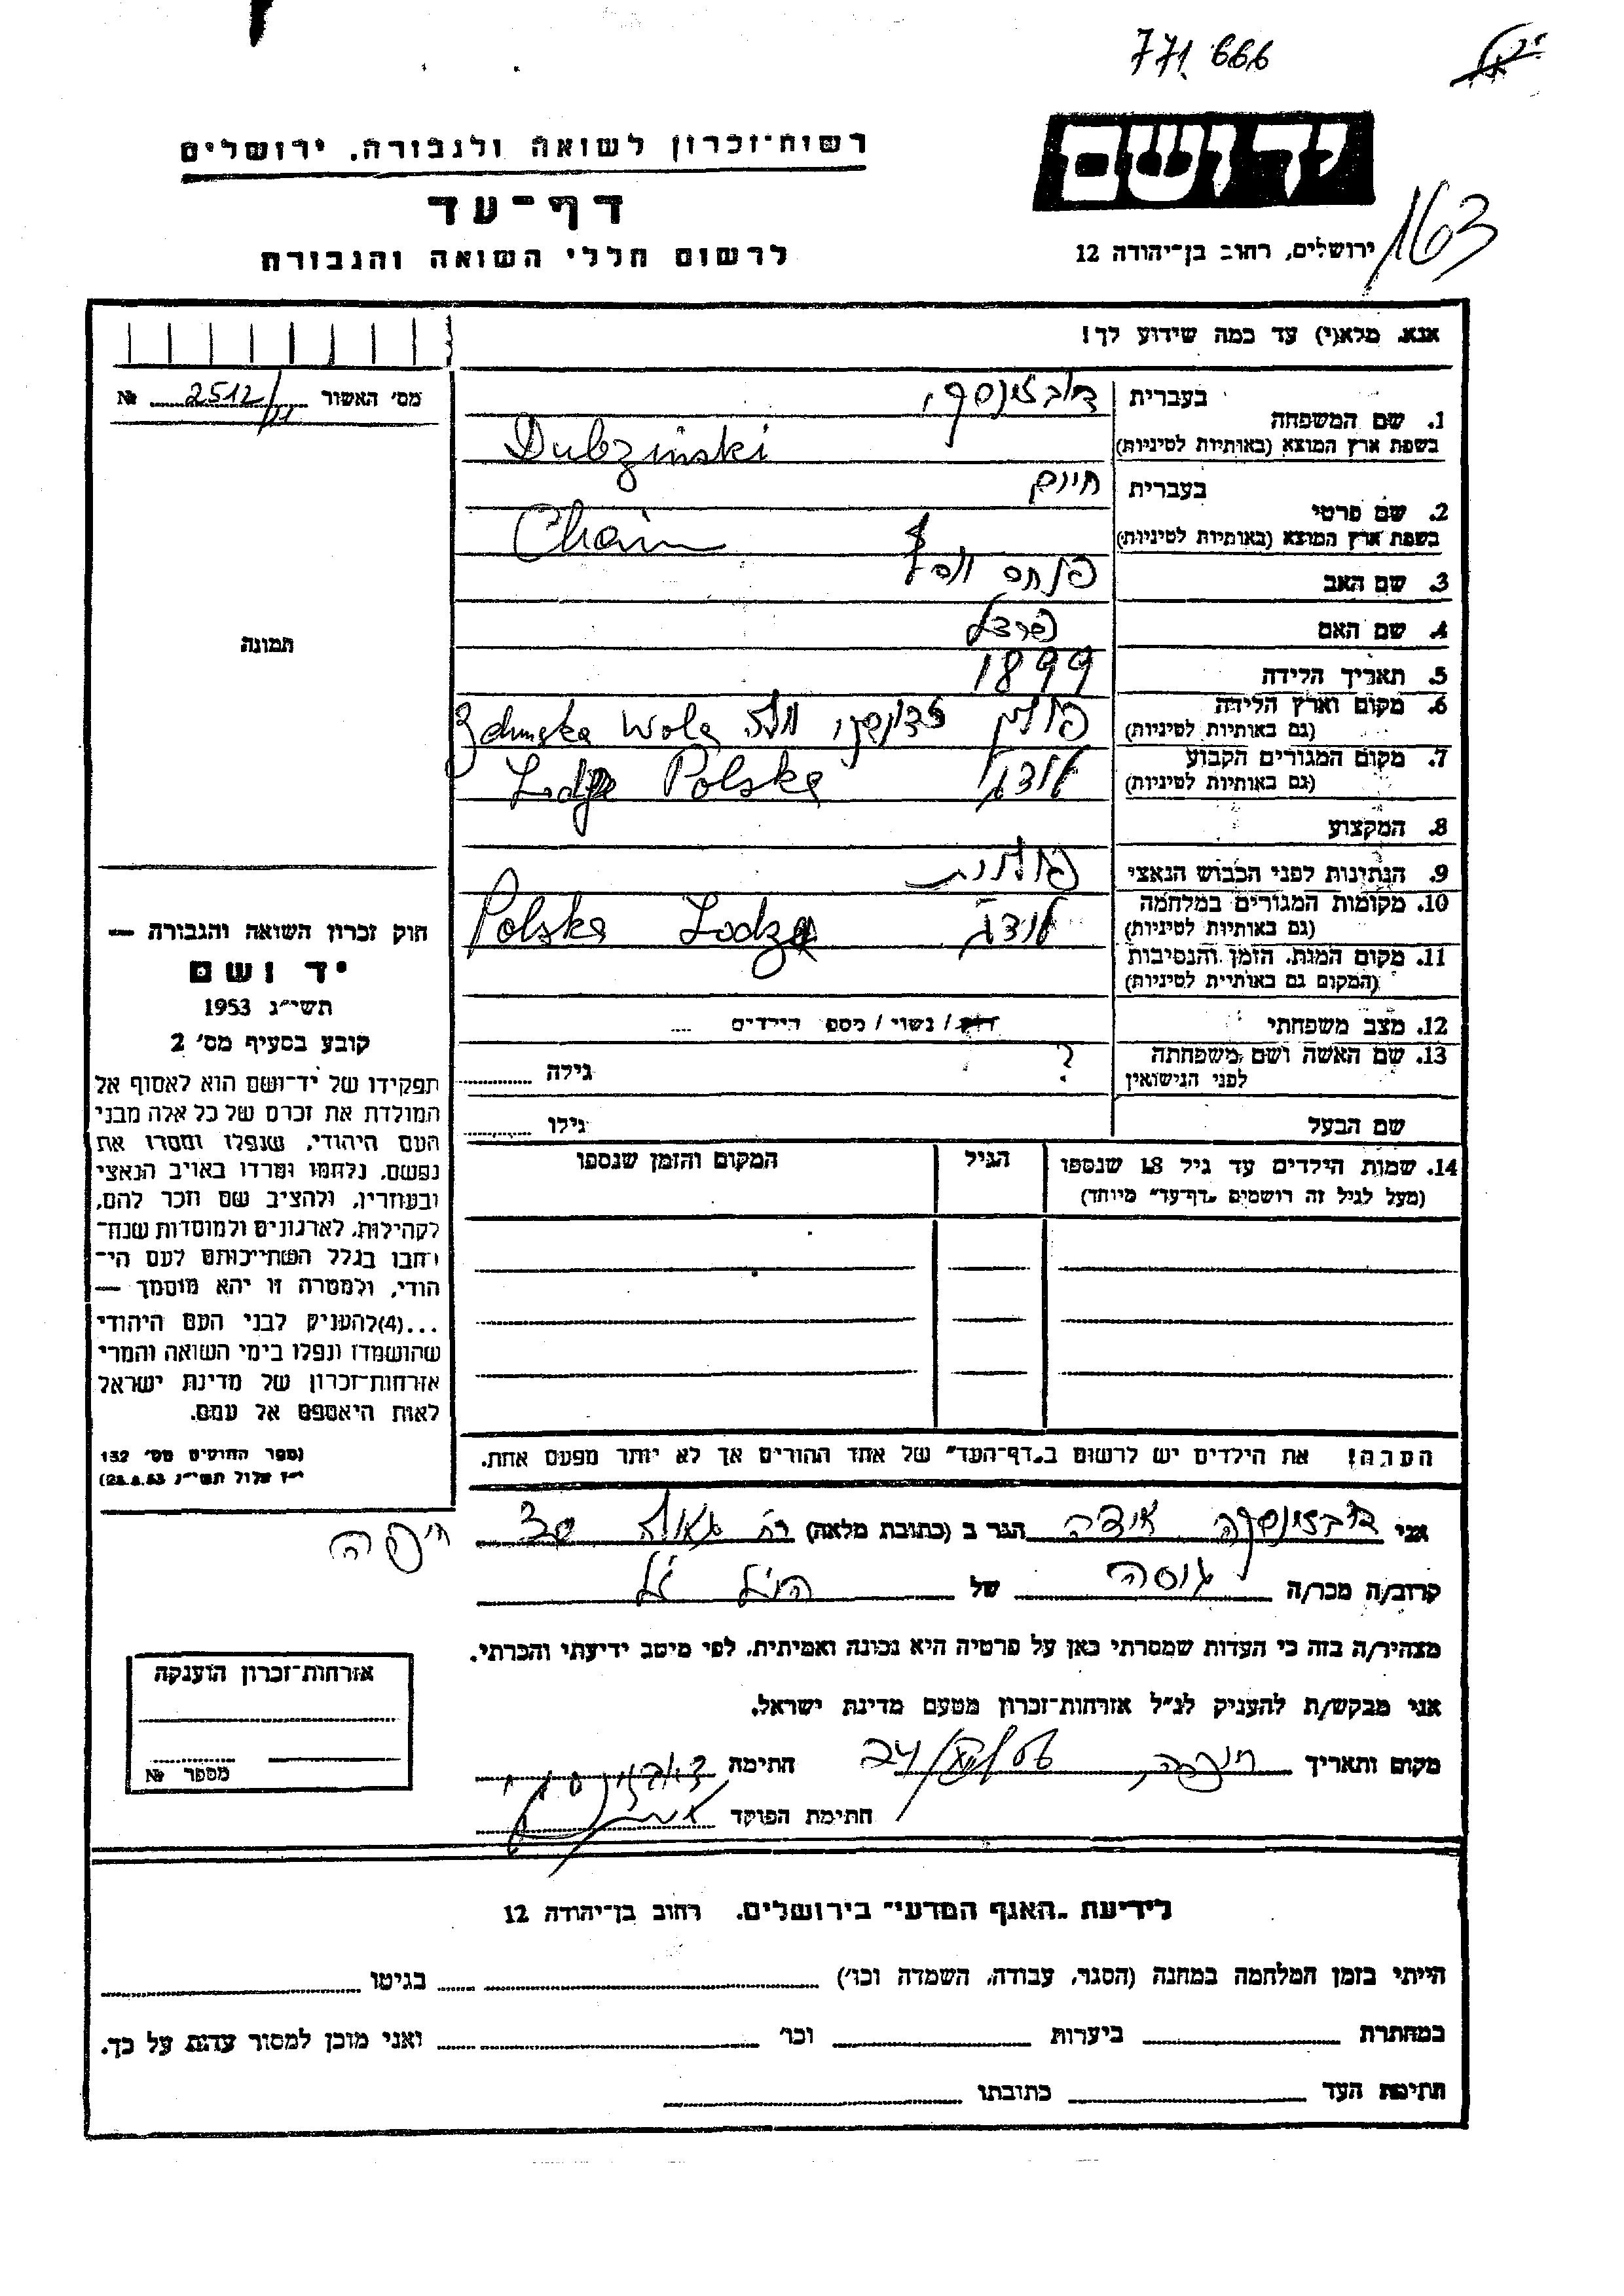 771 666
רשות־זכרון לשואה ולגבורה. ירושלים
יד ושם
דף־עד
163
ירושלים, רחוב בן־יהודה 12
לרשום חללי השואה והגבורה
אנא. מלא(י) עד כמה שידוע לך!
מס' האשור 2512/11 №
1. שם המשפחה
בעברית דובזינסקי
בשפת ארץ המוצא (באותיות לטיניות) Dubzinski
2. שם פרטי
בעברית חיים
בשפת ארץ המוצא (באותיות לטיניות) Chaim
3. שם האב פנחס
4. שם האם
5. תאריך הלידה 1899
6. מקום וארץ הלידה פולין Zdunska Wola
(גם באותיות לטיניות)
7. מקום המגורים הקבוע לודג' Polska
(גם באותיות לטיניות)
8. המקצוע
9. הנתינות לפני הכבוש הנאצי פולנית
10. מקומות המגורים במלחמה לודג' Lodz Polska
(גם באותיות לטיניות)
11. מקום המות. הזמן והנסיבות
(המקום גם באותיית לטיניות)
12. מצב משפחתי רוק/ נשוי / מספ הילדים
13. שם האשה ושם משפחתה ? גילה
לפני הנישואין
שם הבעל גילו
14. שמות הילדים עד גיל 18 שנספו הגיל המקום והזמן שנספו
(מעל לגיל זה רושמים „דף־עד" מיוחד)
תמונה
חוק זכרון השואה והגבורה —
יד ושם
תשי"ג 1953
קובע בסעיף מס' 2
תפקידו של יד־ושם הוא לאסוף אל
המולדת את זכרם של כל אלה מבני
העם היהודי, שנפלו ומסרו את
נפשם, נלחמו ומרדו באויב הנאצי
ובעוזריו, ולהציב שם וזכר להם,
לקהילות, לארגונים ולמוסדות שנח־
רחבו בגלל השתייכותם לעם הי־
הודי, ולמטרה זו יהא מוסמך —
...(4)להעניק לבני העם היהודי
שהושמדו ונפלו בימי השואה והמרי
אזרחות־זכרון של מדינת ישראל
לאות היאספם אל עמם.
(ספר החוקים מס' 132
י"ז אלול תשי"ג 28.8.53)
הערה! את הילדים יש לרשום ב„דף־העד" של אחד ההורים אך לא יותר מפעם אחת.
אני דובזינסקה אידה הגר ב (כתובת מלאה) רח גאולה חיפה
קרוב/ה מכר/ה גיסה של הנ"ל
מצהיר/ה בזה כי העדות שמסרתי כאן על פרטיה היא נכונה ואמיתית. לפי מיטב ידיעתי והכרתי.
אני מבקש/ת להעניק לנ"ל אזרחות־זכרון מטעם מדינת ישראל.
מקום ותאריך חיפה, 24/ 56 חתימה דובזינסקי
חתימת הפוקד
אזרחות־זכרון הוענקה
מספר №
לידיעת „האגף המדעי" בירושלים. רחוב בן־יהודה 12
הייתי בזמן המלחמה במחנה (הסגר, עבודה, השמדה וכו') בגיטו
במחתרת ביערות וכו' ואני מוכן למסור עדות על כך.
חתימת העד כתובתו